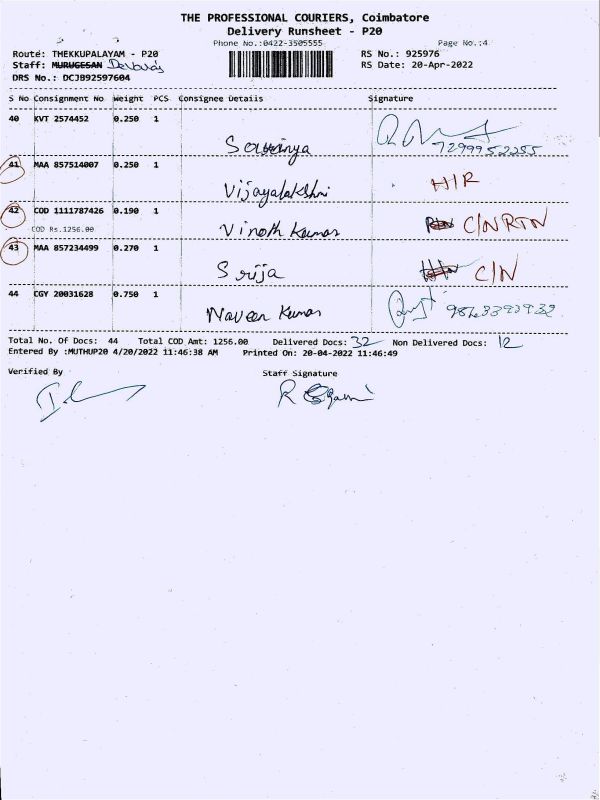 THE PROFESSIONAL COURIERS, Coimbatore
Delivery Runsheet - P20
Phone No.:0422-3505555
Page No.:4
Route: THEKKUPALAYAM - P20
RS No.: 925976
Staff: MURUGESAN Devaraj
RS Date: 20-Apr-2022
DRS No.: DCJB92597604
S No Consignment No Weight PCS Consignee Details Signature
40 KVT 2574452 0.250 1
Sowmya 7299952255
41 MAA 857514007 0.250 1
Vijayalakshmi H/R
42 COD 1111787426 0.190 1
COD Rs.1256.00 Vinoth Kumar C/N RTN
43 MAA 857234499 0.270 1
Srija C/N
44 CGY 20031628 0.750 1
Naveen Kumar
Total No. Of Docs: 44 Total COD Amt: 1256.00 Delivered Docs: 32 Non Delivered Docs: 12
Entered By :MUTHUP20 4/20/2022 11:46:38 AM Printed On: 20-04-2022 11:46:49
Verified By Staff Signature